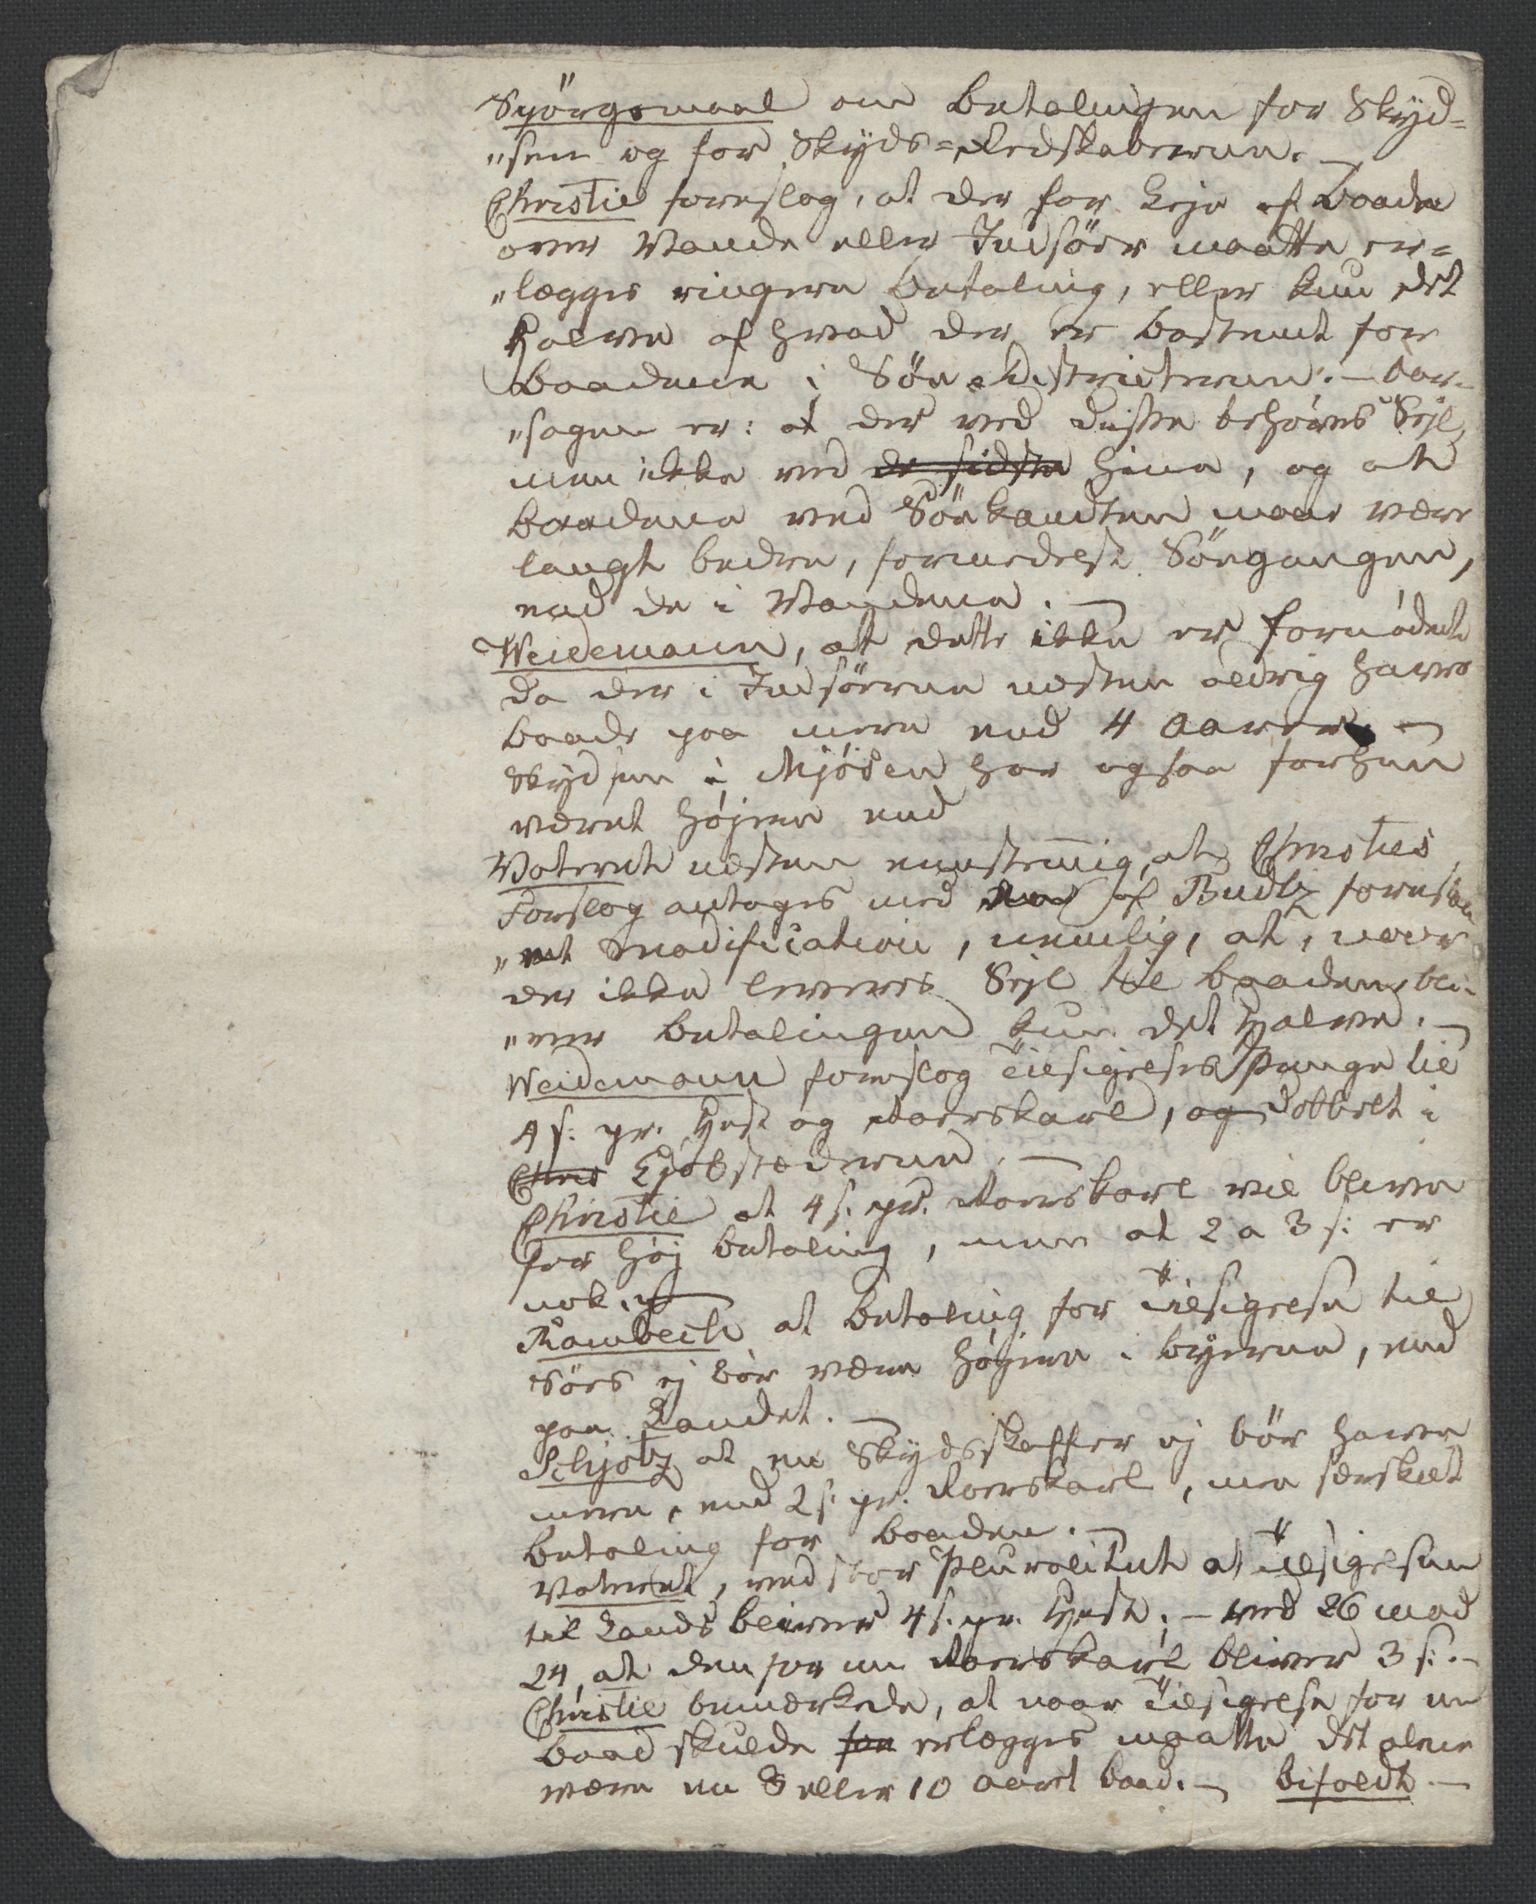 Spörgsmaal om Betalingen for Skyd=
"sen og for Skyds=Redskaberne. —
Christie foreslog, at der for Leje af Baade
over Vande eller Indsöer maatte er=
"lægges ringere Betaling, eller kun det
Halve af hvad der er bestemt for
Baadene i Söe=Districterne. — Aar=
"sagen er: at der ved disse behöves Sejl,
men ikke ved de sidste hine, og at
Baadene ved Söekandten maae være
langt bedre, formedelst Söegangen,
end de i Vandene. —
Weidemann, at dette ikke er fornödent
da der i Indsöerne næsten aldrig haves
Baade paa mere end 4 Aarer. —
Skydsen i Mjösen har ogsaa forhen
været höjere end
Voteret næsten eenstemmig, at Christies
Forslag antages med den af Budtz foreslaa
"et Modification, nemlig, at, naar
der ikke leveres Sejl til Baaden, bli=
"ver Betalingen kun det Halve. —
Weidemann foreslog Tilsigelses Penge til
4 s: pr. Hest og Roerskarl, og dobbelt i
Chris Kjöbstæderne. —
Christie at 4 s: pr. Roerskarl vil blive
for höj Betaling, men at 2 a 3 s: er
nok. —
Rambech at Betaling for Tilsigelse til
Söes ej bör være höjere i Byerne, end
paa Landet. —
Schjötz at en Skydsskaffer ej bör have
mere, end 2 s: pr. Roerskarl, men særskilt
Betaling for Baaden. —
Voteret, med stor Pluralitet at Tilsigelsen
til Lands bliver 4 s. pr. Hest; — med 26 mod
24, at den for en Roerskarl bliver 3 s: —
Christie bemærkede, at naar Tilsigelse for en
Baad skulde for erlægges maatte det alene
være en 8 eller 10 Aaret Baad. — bifaldt. —